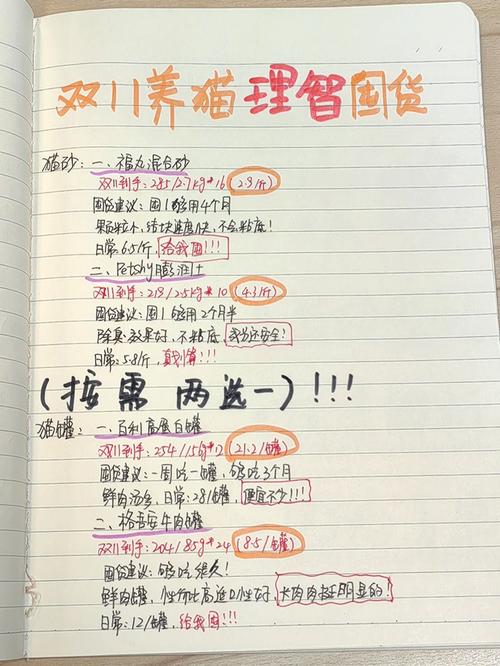 双11养猫理智囤货
猫砂：一、福丸混合砂
双11到手：285/2.7kg*16（2.9/斤）
囤货建议：囤1够用4个月
果粒小、结块速度快、不会粘底！
日常6.5/斤，给我囤!!!
二、Petshy膨润土
双11到手：219/2.5kg*10（4.3/斤）
囤货建议：囤1够用2个月半
除臭效果好，不粘底，成分还安全！
日常：5.8/斤，真划算!!!
（按需 两选一）!!!
猫罐：一、百利高蛋白罐
双11到手：254/156g*12（21.2/罐）
囤货建议：一周吃一罐，够吃3个月
鲜肉汤多，日常：28/罐，便宜不少!!!
二、格吾安牛肉罐
双11到手：204/85g*24（8.5/罐）
囤货建议：够吃很久！
鲜肉罐，性价比高适口性好，大肉肉挺明显的！
日常：12/罐，给我囤!!!